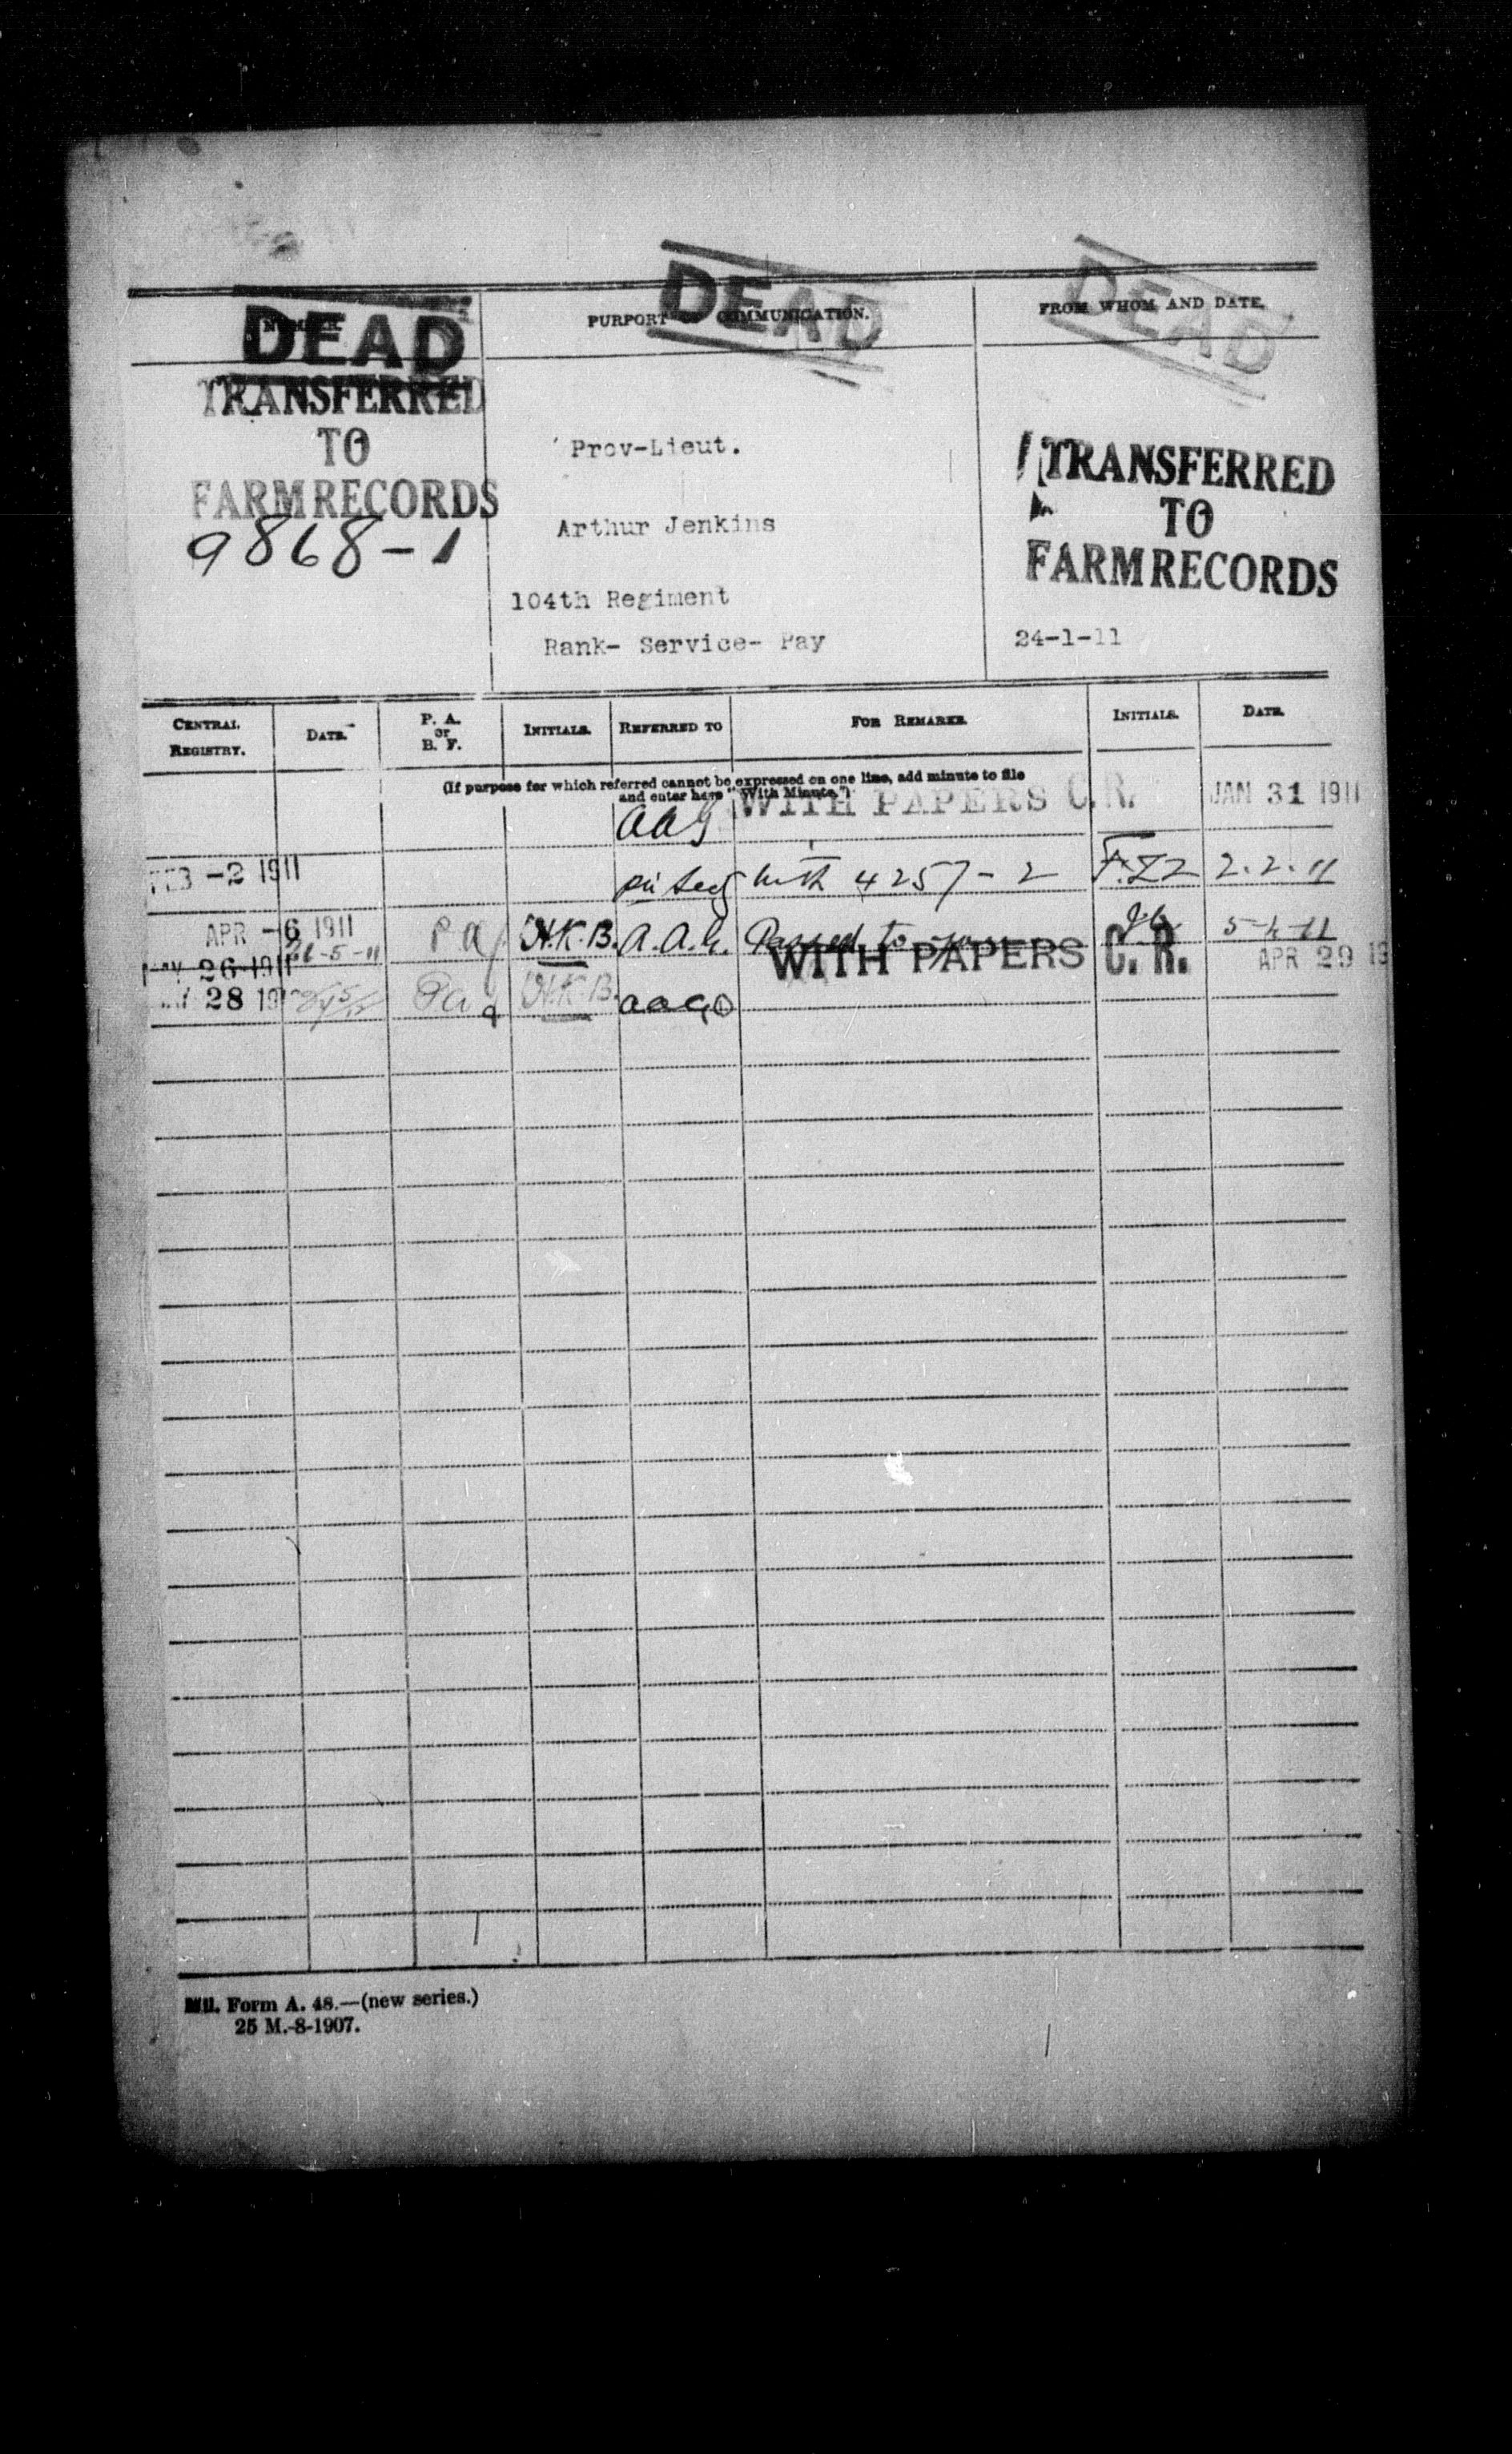 DEAD DEAD DEAD
NUMBER. PURPORT OF COMMUNICATION. FROM WHOM AND DATE.
TRANSFERRED
TO
FARM RECORDS
9868-1
Prov-Lieut.
Arthur Jenkins
104th Regiment
Rank- Service- Pay
TRANSFERRED
TO
FARM RECORDS
24-1-11
CENTRAL REGISTRY. DATE. P. A. or B. F. INITIALS. REFERRED TO FOR REMARKS. INITIALS. DATE.
(If purpose for which referred cannot be expressed on one line, add minute to file
and enter here "With Minute.")
AAG WITH PAPERS C.R. JAN 31 1911
FEB -2 1911 with 4257-2 2.2.11
APR -6 1911 P.A. H.K.B. A.A.G. Passed to you 5-4-11
MAY 26 1911 26-5-11 WITH PAPERS C. R. APR 29 19
MAY 28 19 P.A. H.K.B.
Mil. Form A. 48.—(new series.)
25 M.-8-1907.